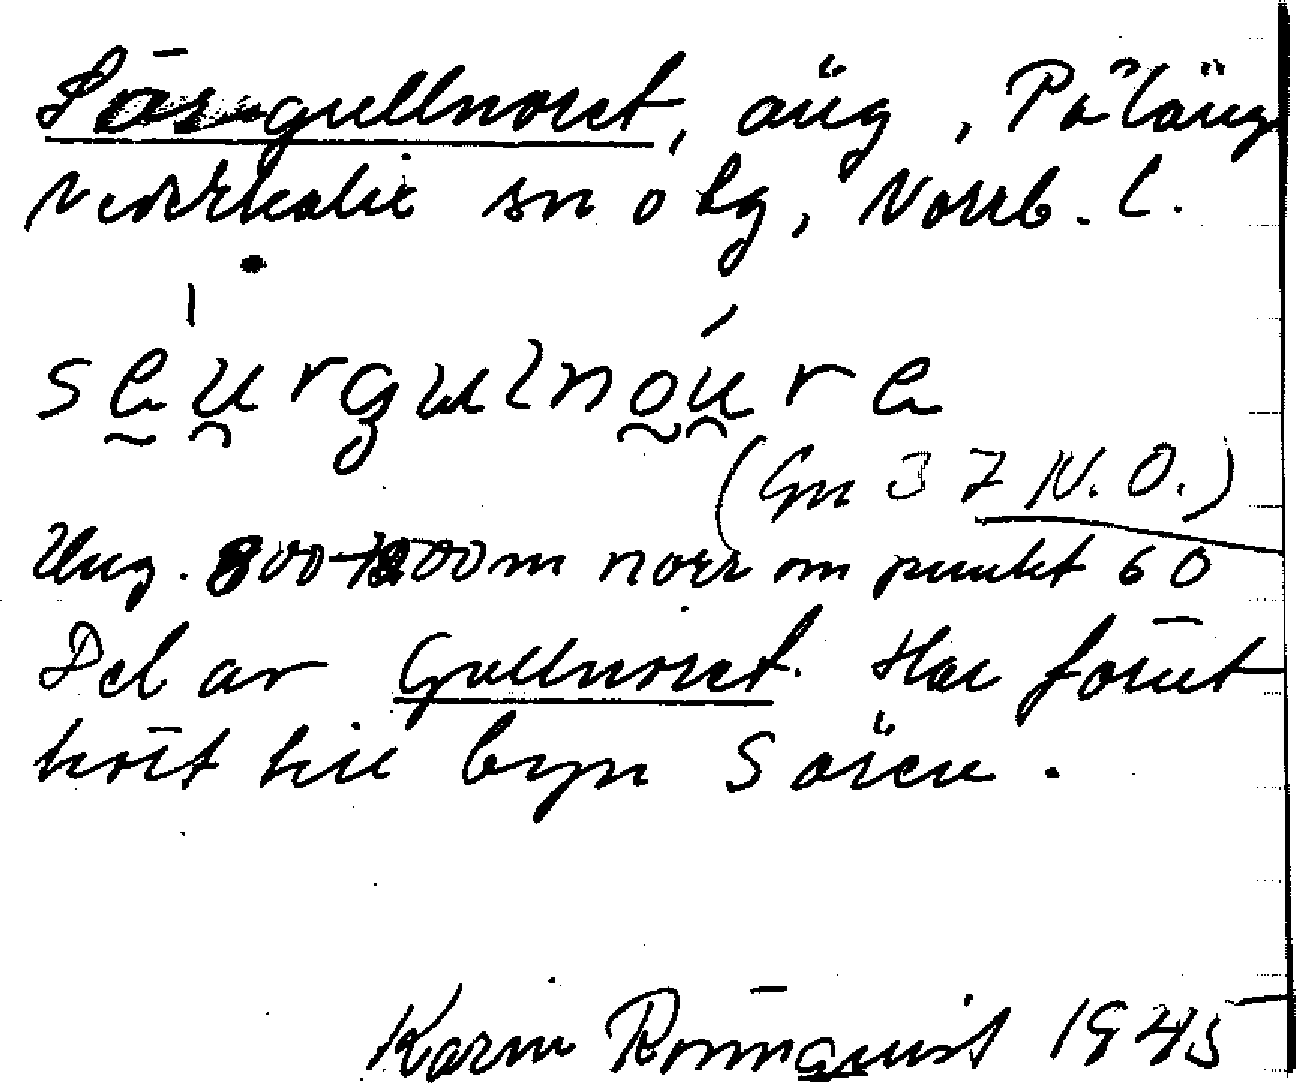 Sörgullnoret, äng, Påläng
Nederkalix sn o tg, Norrb. l.
sèurgulnóure
(Gn 37 N.O.)
Ung. 800-1200m norr om punkt 60
Del av Gullnoret. Har förut
hört till byn Sören.
Karin Rönnquist 1945